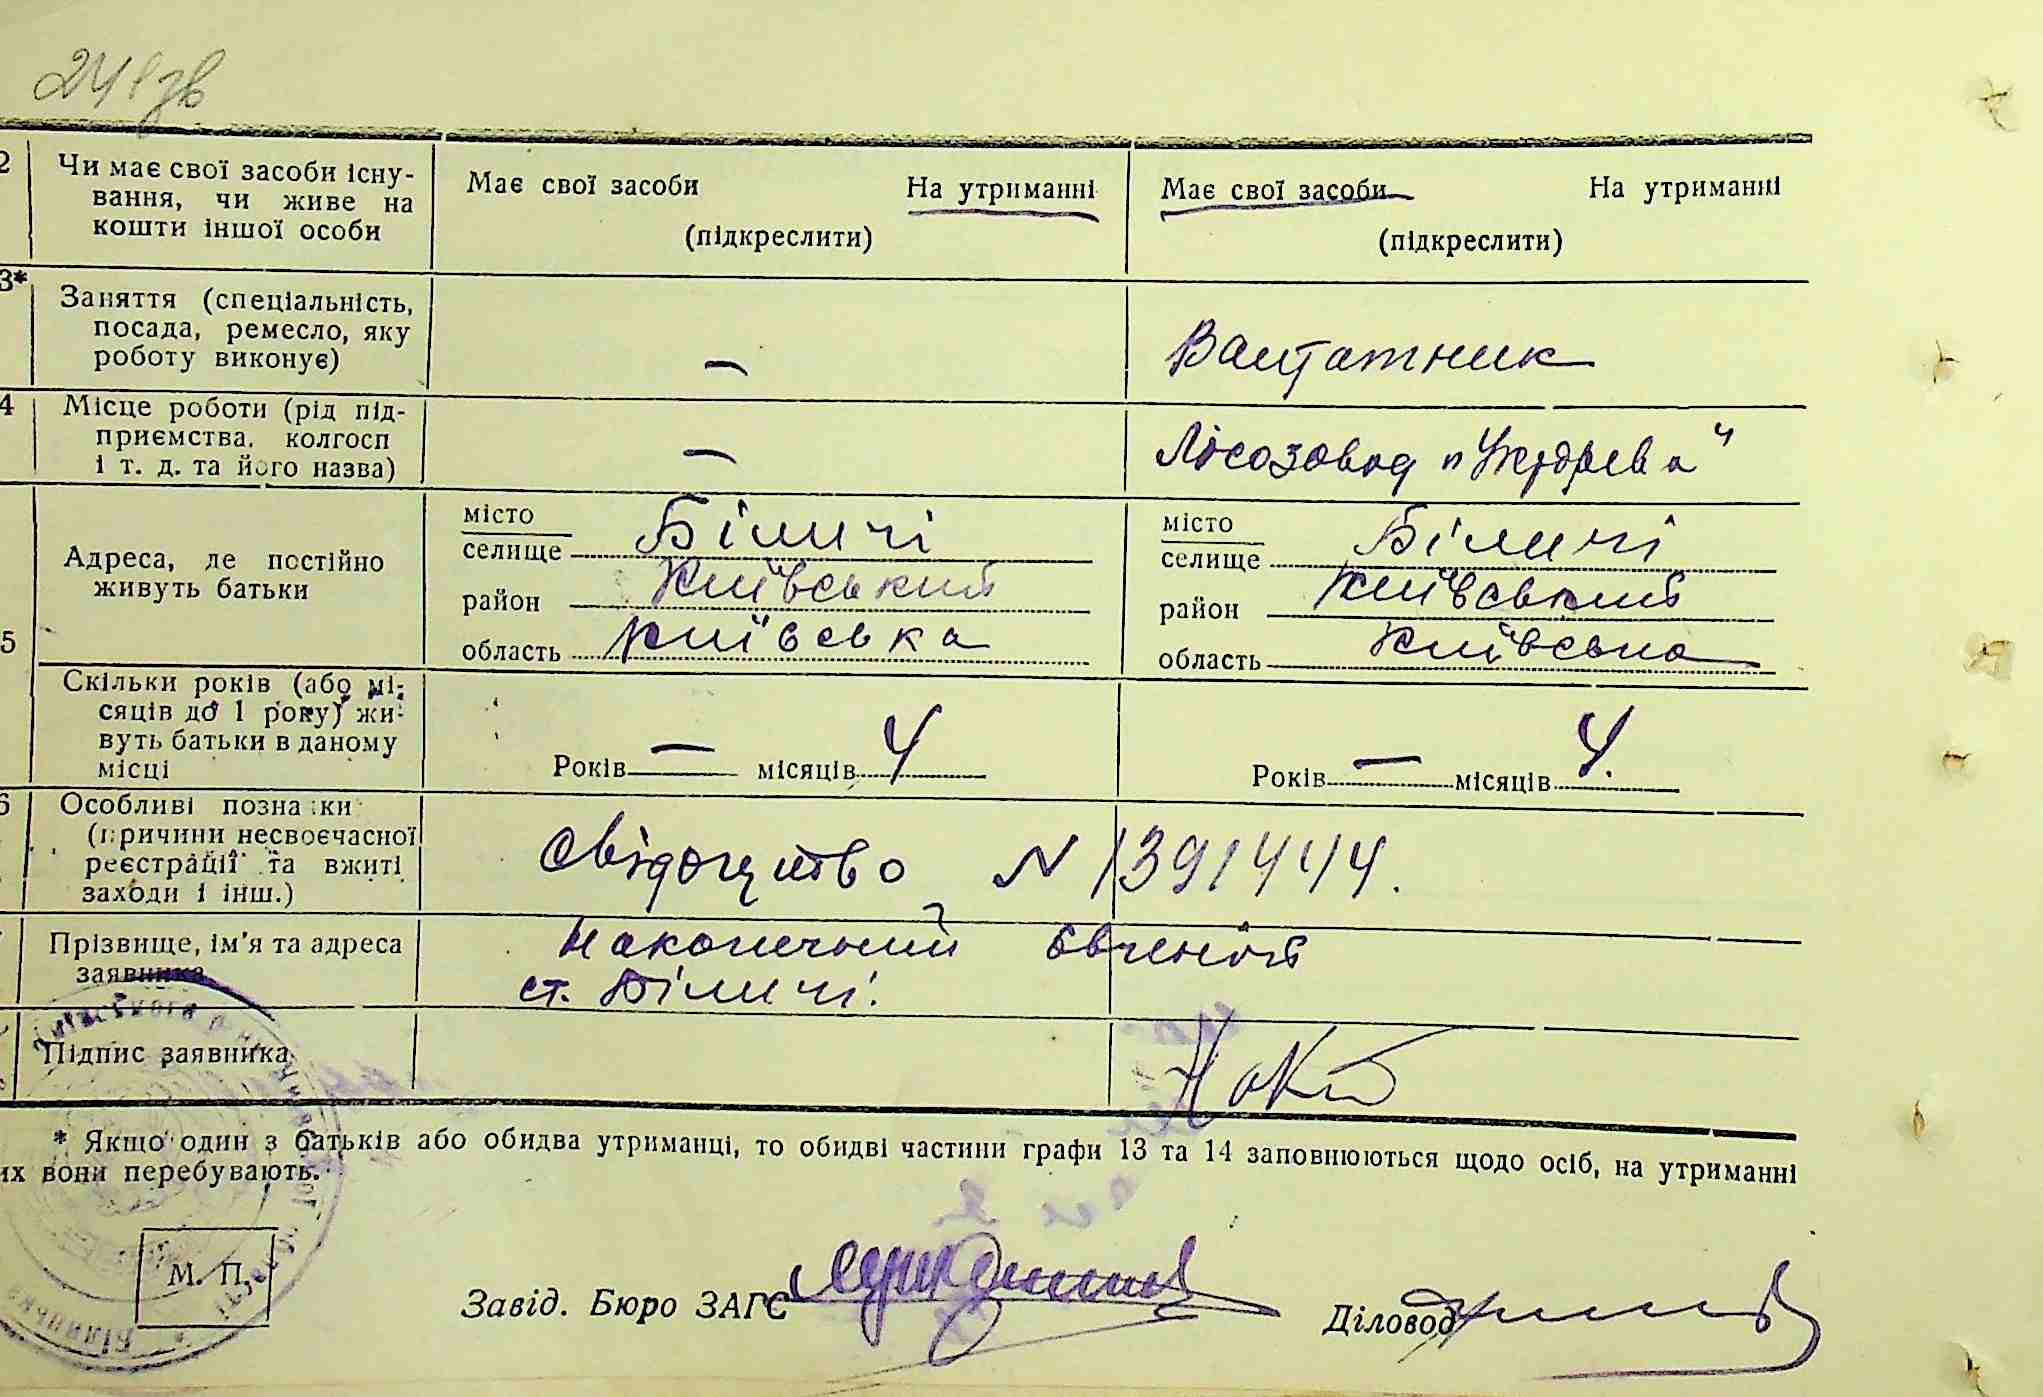 241зв
2 Чи має свої засоби існу-
вання, чи живе на
кошти іншої особи
Має свої засоби На утриманні
(підкреслити)
Має свої засоби На утриманні
(підкреслити)
3* Заняття (спеціальність,
посада, ремесло, яку
роботу виконує)
—
Вантажник
4 Місце роботи (рід під-
приємства, колгосп
і т. д. та його назва)
—
Лісозавод „Укрдрева"
5 Адреса, де постійно
живуть батьки
місто
селище Біличі
район Київський
область Київська
місто
селище Біличі
район Київський
область Київська
Скільки років (або мі-
сяців до 1 року) жи-
вуть батьки в даному
місці
Років — місяців 4
Років — місяців 4.
6 Особливі познаки
(причини несвоєчасної
реєстрації та вжиті
заходи і інш.)
Свідоцтво N 1391444.
Прізвище, ім'я та адреса
заявника
Наконечний Євгеній
ст. Біличі.
Підпис заявника
* Якщо один з батьків або обидва утриманці, то обидві частини графи 13 та 14 заповнюються щодо осіб, на утриманні
их вони перебувають.
М. П.
Завід. Бюро ЗАГС
Діловод